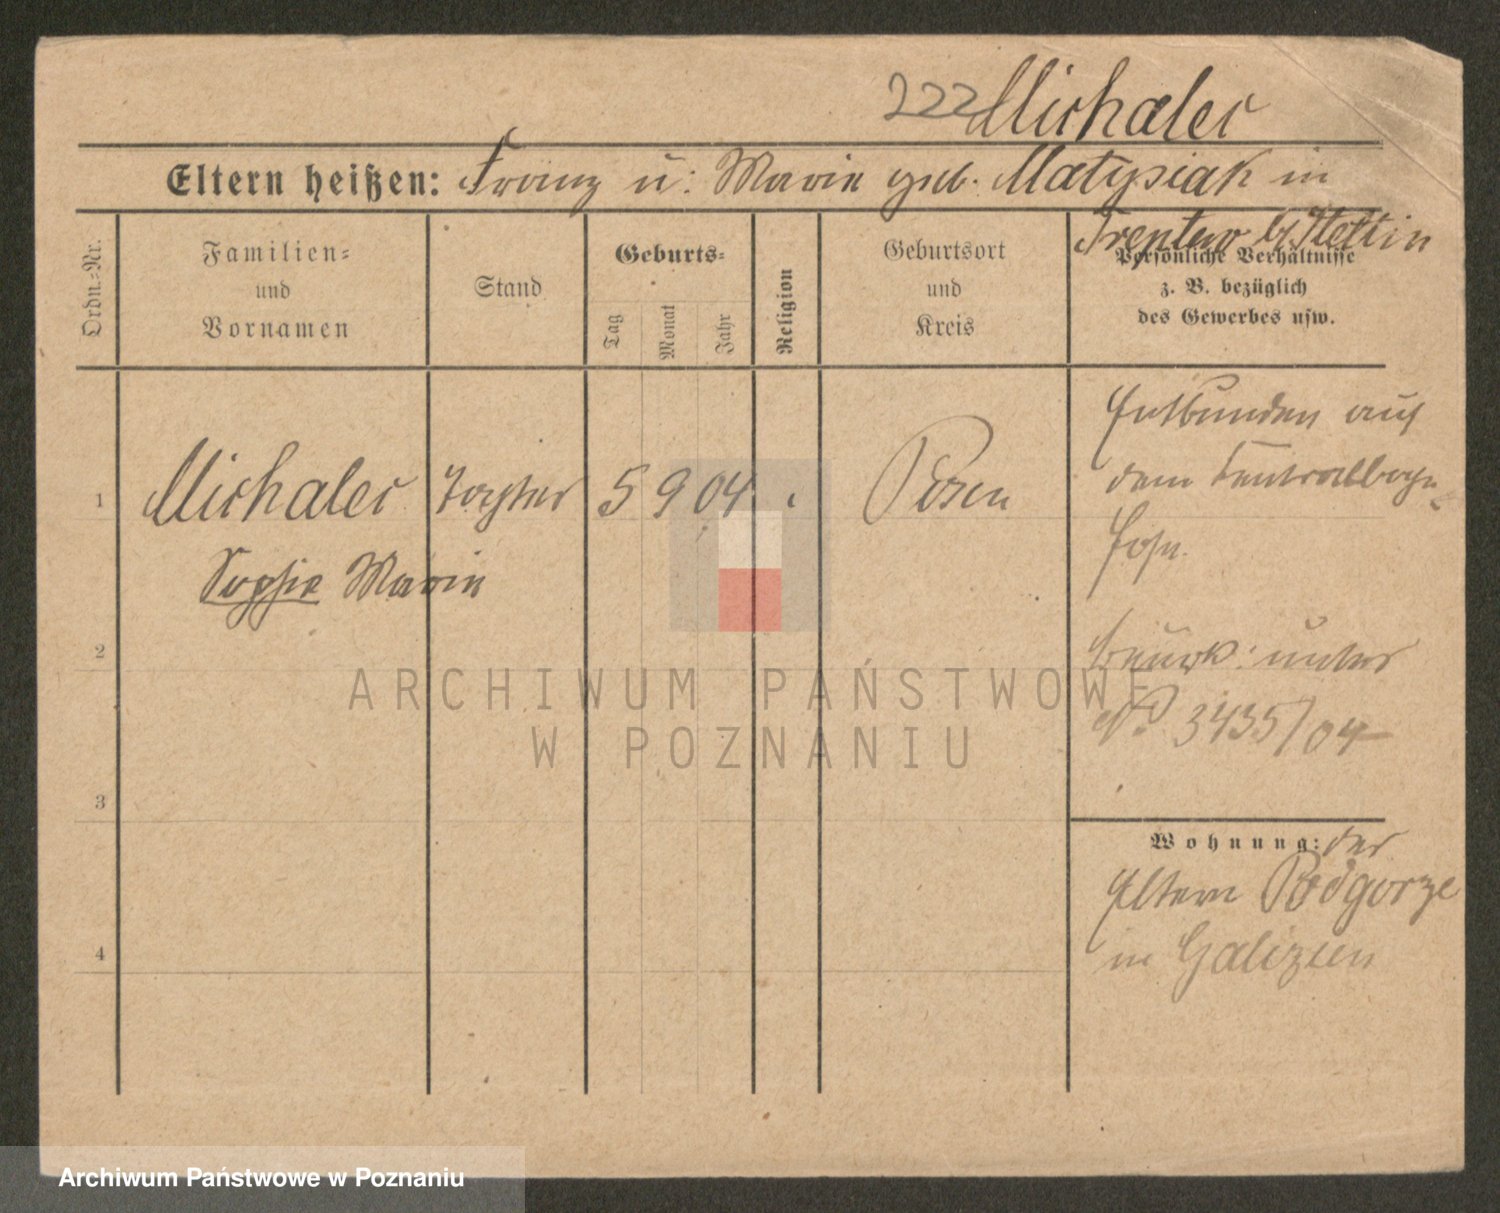 222 Michalec
Eltern heißen: Franz u: Marie geb. Matysiak in
Treptow b/Stettin
Ordn.-Nr.
Familien-
und
Vornamen
Stand
Geburts-
Tag
Monat
Jahr
Religion
Geburtsort
und
Kreis
Persönliche Verhältnisse
z. B. bezüglich
des Gewerbes usw.
1 Michalec Tochter 5 9 04 Posen
Sophie Marie
2
3
4
Entbunden auf
dem Centralbahn-
hofe.
beurk: unter
No 3435/04
Wohnung: der
Eltern Podgorze
in Galizien
ARCHIWUM PAŃSTWOWE
W POZNANIU
Archiwum Państwowe w Poznaniu